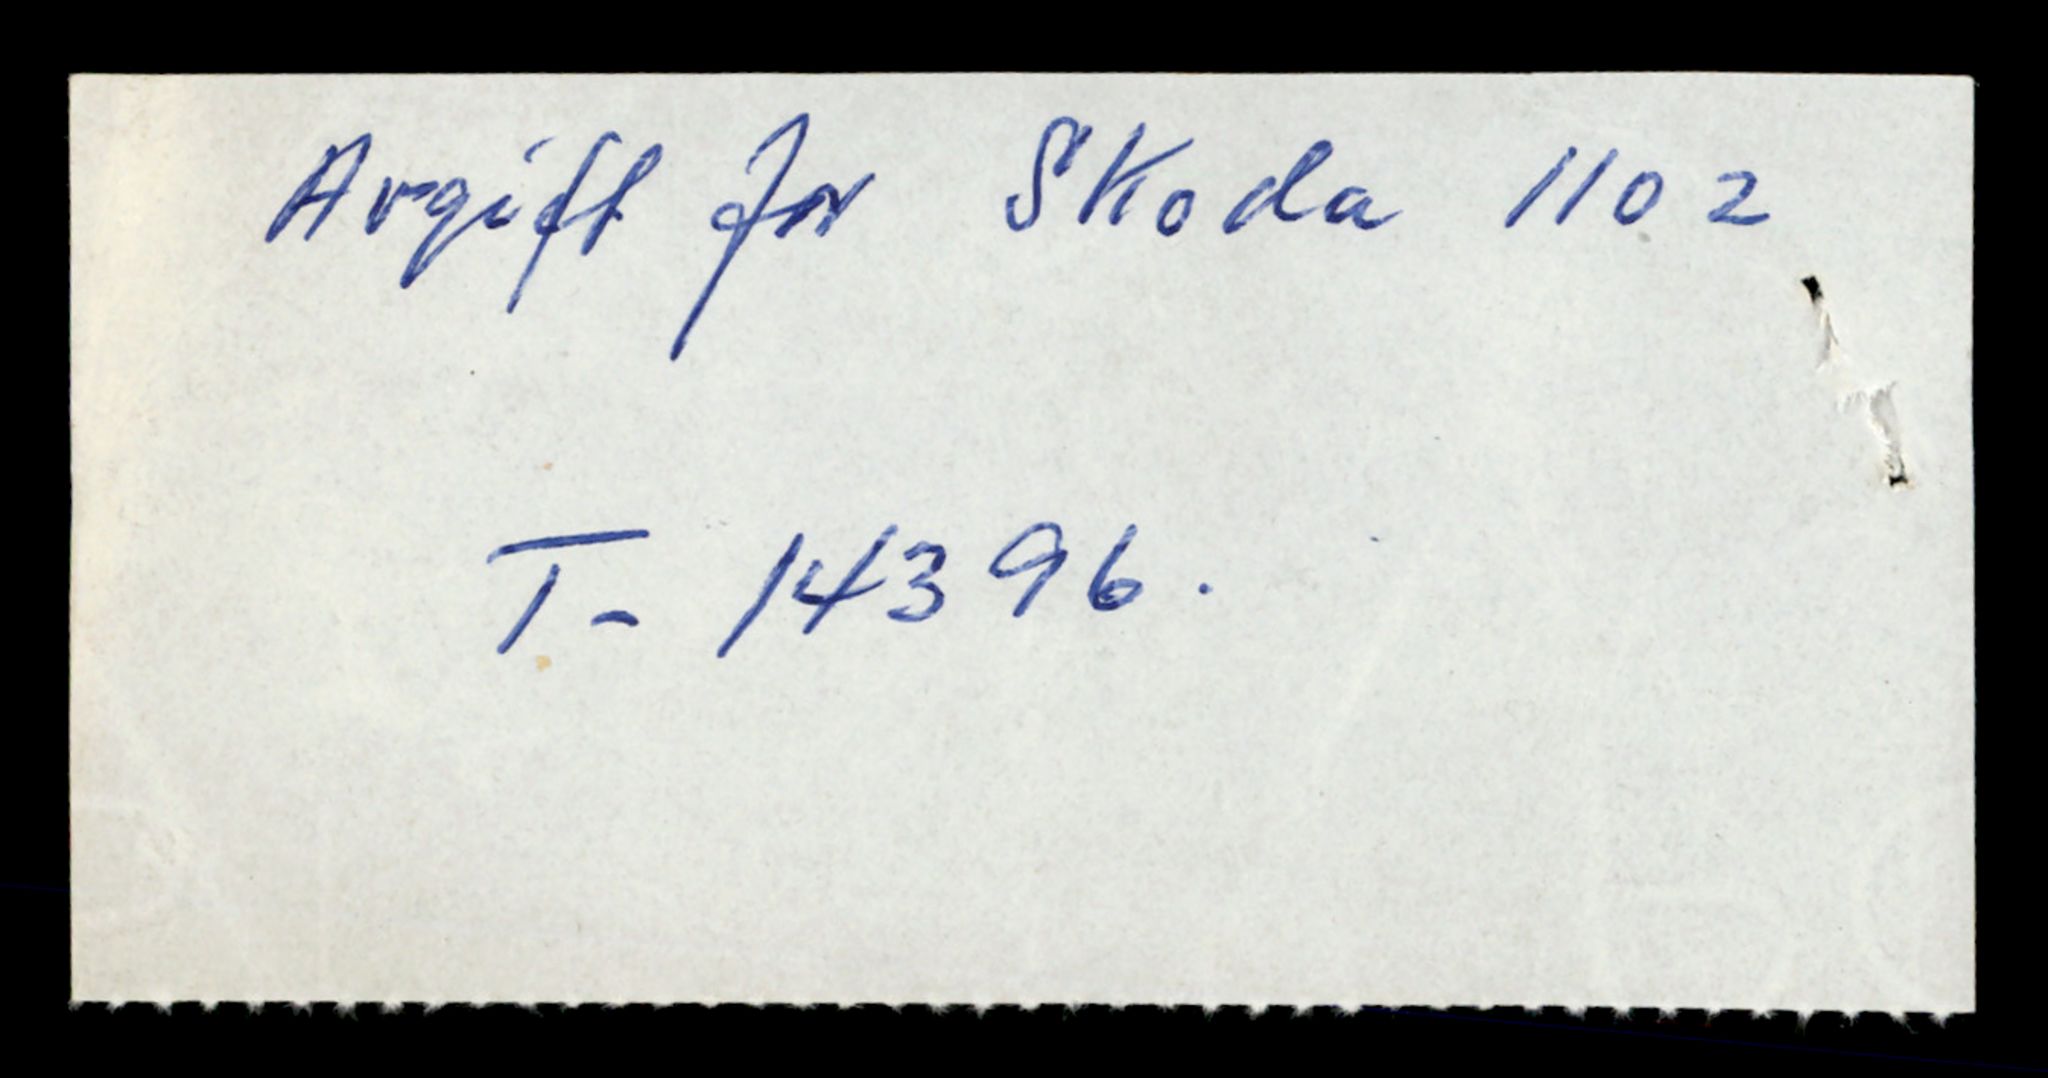 Avgift for Skoda 1102
T- 14396.